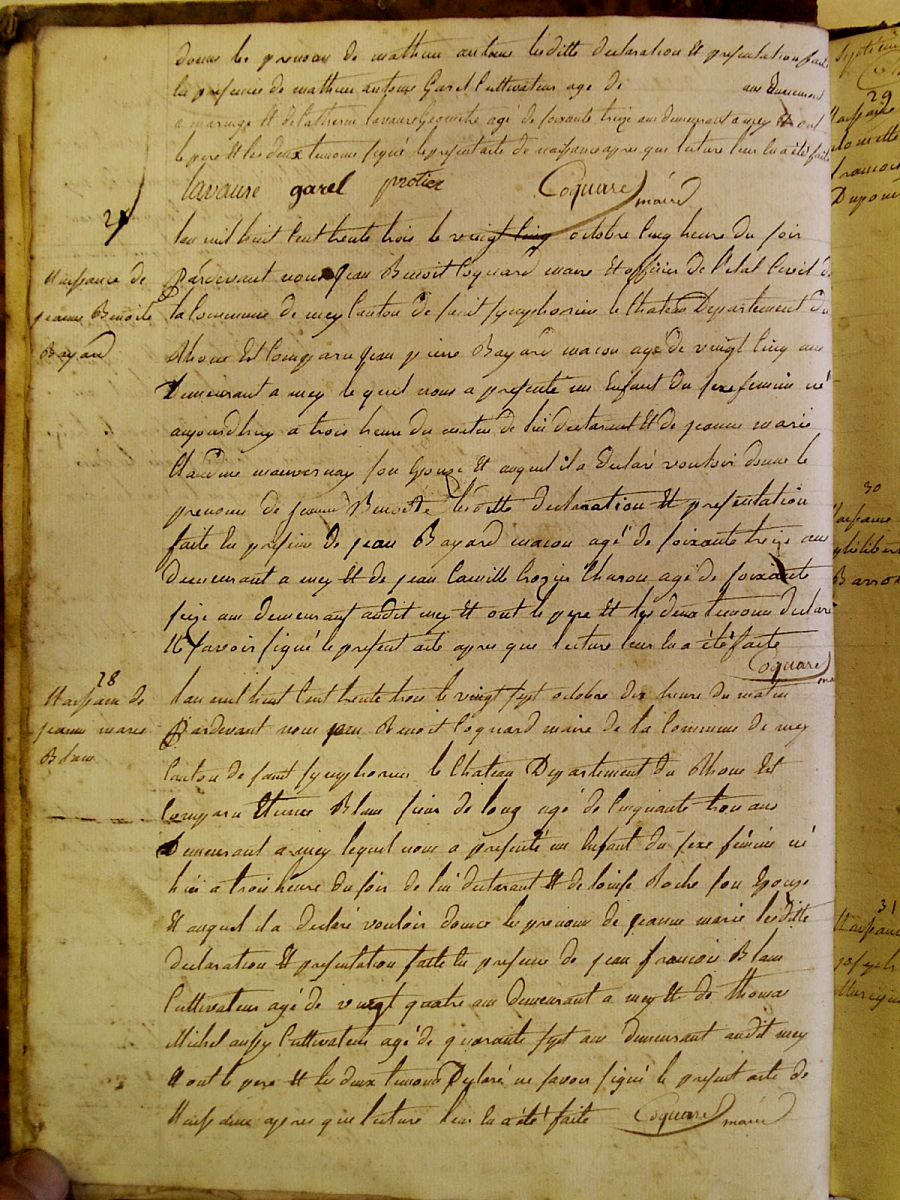 donne les prenoms de mathieu antoine lesditte declaration et presentation faite
en presence de mathieu antoine Garel Cultivateur age de ans Demeurant
a maringe et de Catherin lavaure age de soixante treize ans demeurant a mey et ont
le pere et les deux temoins signé le present acte de naissance apres que lecture leur en a été faite
lavaure garel protier Coquard maire
naissance de
jeanne Benoite
Bayard
Lan mil huit cent trente trois le vingt cinq octobre cinq heure du soir
Pardevant nous jean Benoit Coquard maire et officier de l'etat Civil de
la Commune de mey Canton de saint symphorien le Chateau Departement du
Rhone Est Comparu jean pierre Bayard macon agé de vingt cinq ans
Demeurant a mey lequel nous a presenté un Enfant du sexe feminin né
aujourdhuy a trois heure du matin de lui declarant et de jeanne marie
Claudine mauvernay son Epouse et auquel il a declaré vouloir donne le
prenoms de jeanne Benoite lesditte declaration et presentation
faite en presence de jean Bayard macon agé de soixante treize ans
Demeurant a mey et de jean Camille Charon agé de soixante
seize ans demeurant audit mey et ont le pere et les deux temoins declaré
ne savoir signé le present acte apres que lecture leur en a été faite
Coquard maire
28
Naissance de
jeanne marie
Blanc
Lan mil huit cent trente trois le vingt sept octobre dix heure du matin
Pardevant nous jean Benoit Coquard maire de la Commune de mey
Canton de saint symphorien le Chateau Departement du Rhone Est
Comparu Etienne Blanc sieur de long agé de Cinquante trois ans
Demeurant a mey lequel nous a presenté un Enfant du sexe féminin né
hier a trois heure du soir de lui declarant et de louise Roche son Epouse
et auquel il a declaré vouloir donner les prenoms de jeanne marie lesditte
declaration et presentation faite en presence de jean francois Blanc
Cultivateur agé de vingt quatre ans demeurant a mey et de thomas
Michel aussy Cultivateur agé de quarante sept ans demeurant audit mey
et ont le pere et les deux temoins Declaré ne savoir signé le present acte de
Naissance apres que lecture leur en a été faite Coquard maire
29
Naissance
francois
Dupone
30
Naissance
philibert
31
Naissance